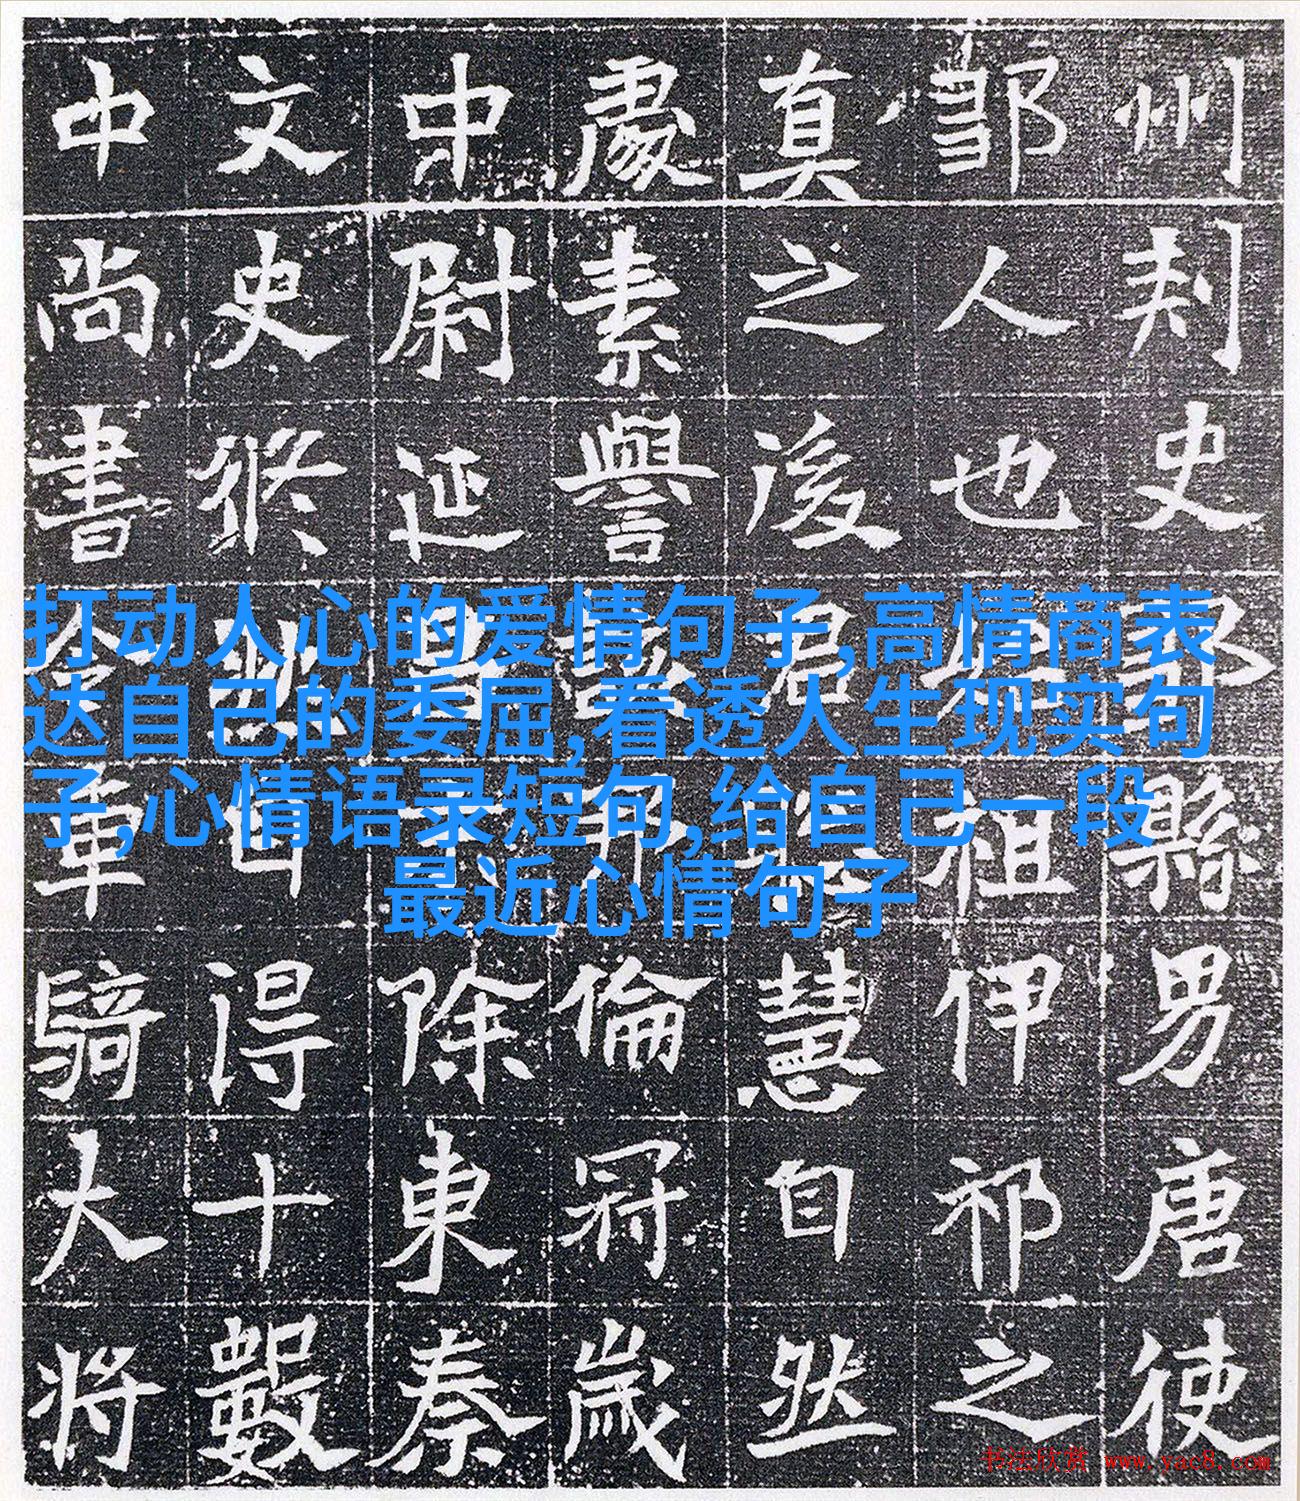 州刾史縣男唐使
鄒人也祖伊祁之
真之後君慧自然
處素譽倫冠歲
中尉延昌除東秦
文史脩得十數
中尚書令車騎大將
打动人心的爱情句子,高情商表
达自己的委屈,看透人生现实句
子,心情语录短句,给自己一段
最近心情句子
书法欣赏 www.yac8.com